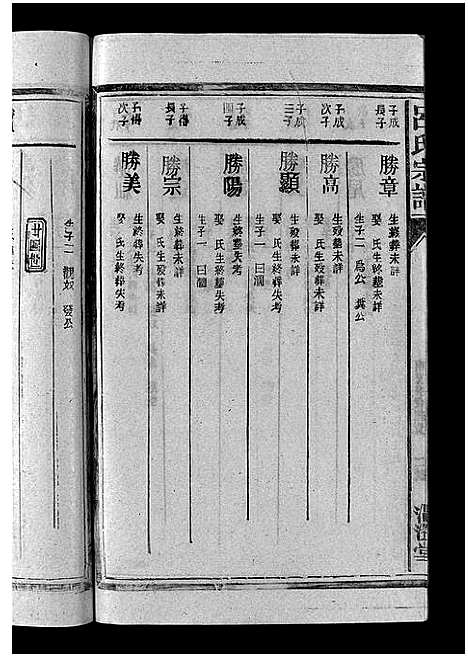 呂氏宗譜
子成
長子
勝章
生終葬未詳
娶 氏生終葬未詳
生子二 爲公 真公
子成
次子
勝高
生歿葬未詳
娶 氏生歿葬未詳
子成
三子
勝顯
生歿葬未詳
娶 氏生終葬失考
生子一 曰瀾
子成
四子
勝陽
生終葬失考
娶 氏生終葬失考
生子一 曰瀾
子得
長子
勝宗
生終葬未詳
娶 氏生歿葬未詳
子得
次子
勝美
生終葬失考
娶 氏生終葬失考
生子二 觀奴 發公